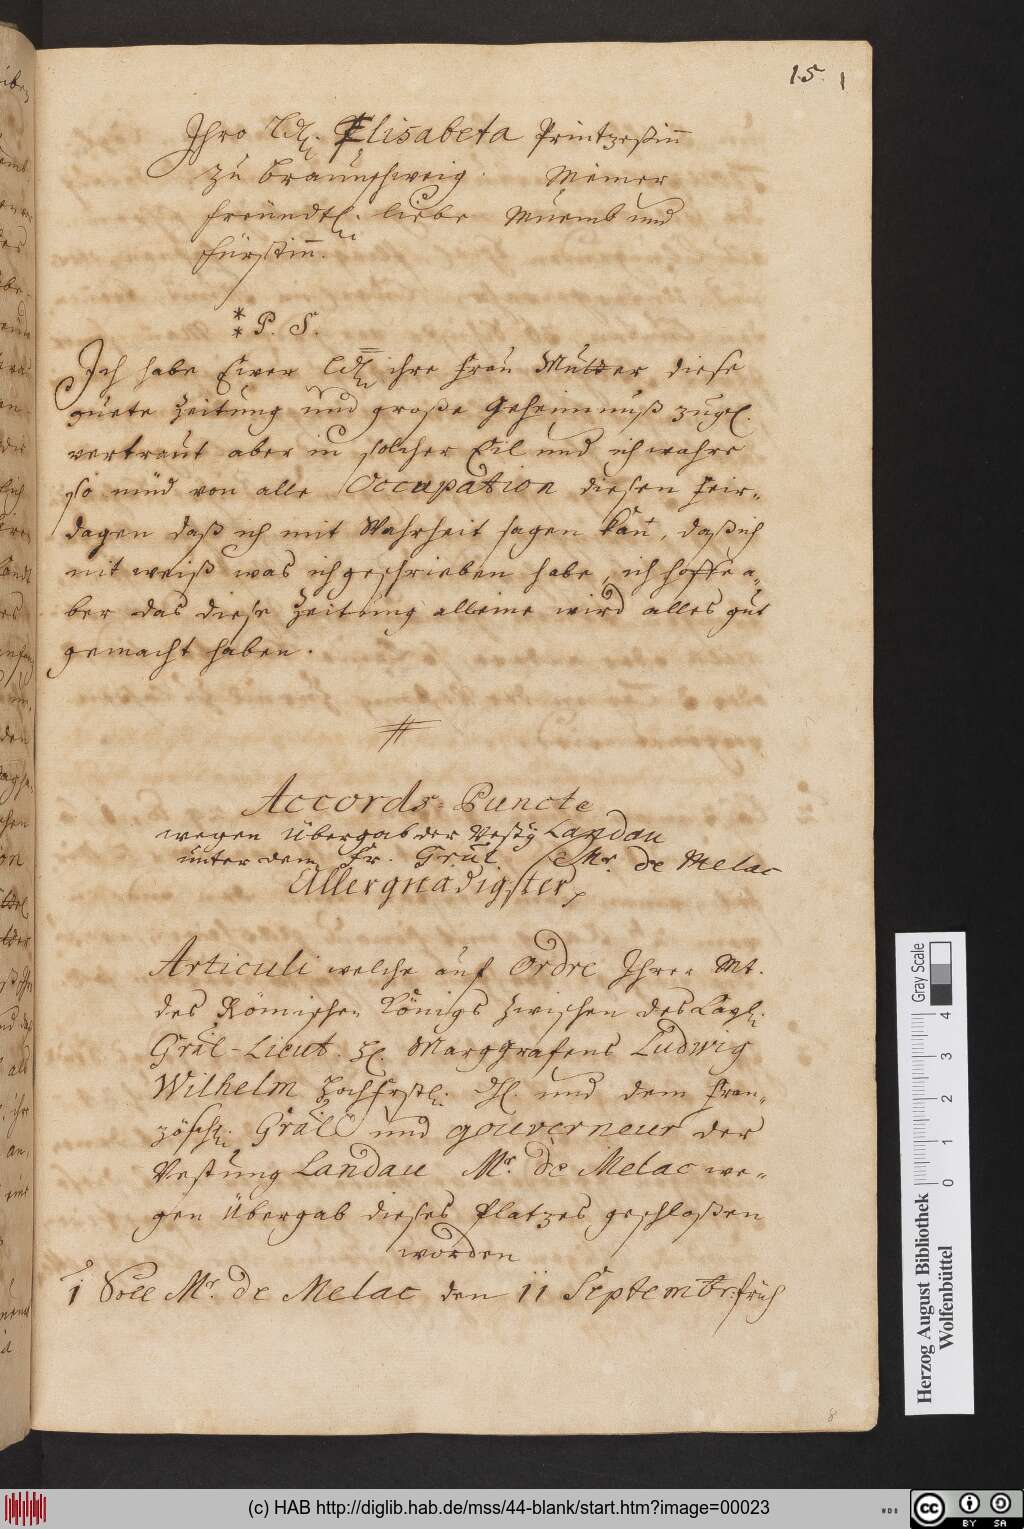 15 1
Ihro Ldl. Elisabeta Printzessinn
zu Braunschweig. Meiner
freundtl. liebe Muemb und
fürstinn.
P. S.
Ich habe Ewer Ldl ihre Frau Mutter diese
guete Zeitung und große Geheimnuß zugl.
vertraut aber in solcher Eil und ich wahre
so müd von alle Occupation diesen Feir-
dagen daß ich mit Wahrheit sagen kan, daß ich
nit weiß was ich geschrieben habe, ich hoffe a-
ber das diese Zeitung alleine wird alles gut
gemacht haben.
Accords-Puncte
wegen Übergab der Vestg Landau
unter dem Fr. Gräl Mr. de Melac
Allergnädigster,
Articuli welche auf Ordre Ihrer Mt.
des Römischen Königs zwischen des Kayl.
Gräl-Lieut. H. Marggrafens Ludwig
Wilhelm Hochfrstl. Dl. und dem Fran-
zösch. Gräl und gouverneur der
Vestung Landau Mr. de Melac we-
gen Übergab dieses Platzes geschloßen
worden
1 Soll Mr. de Melac den 11 Septembr: früh
8
Gray Scale
0 1 2 3 4
Herzog August Bibliothek
Wolfenbüttel
(c) HAB http://diglib.hab.de/mss/44-blank/start.htm?image=00023
WDB
cc
BY SA